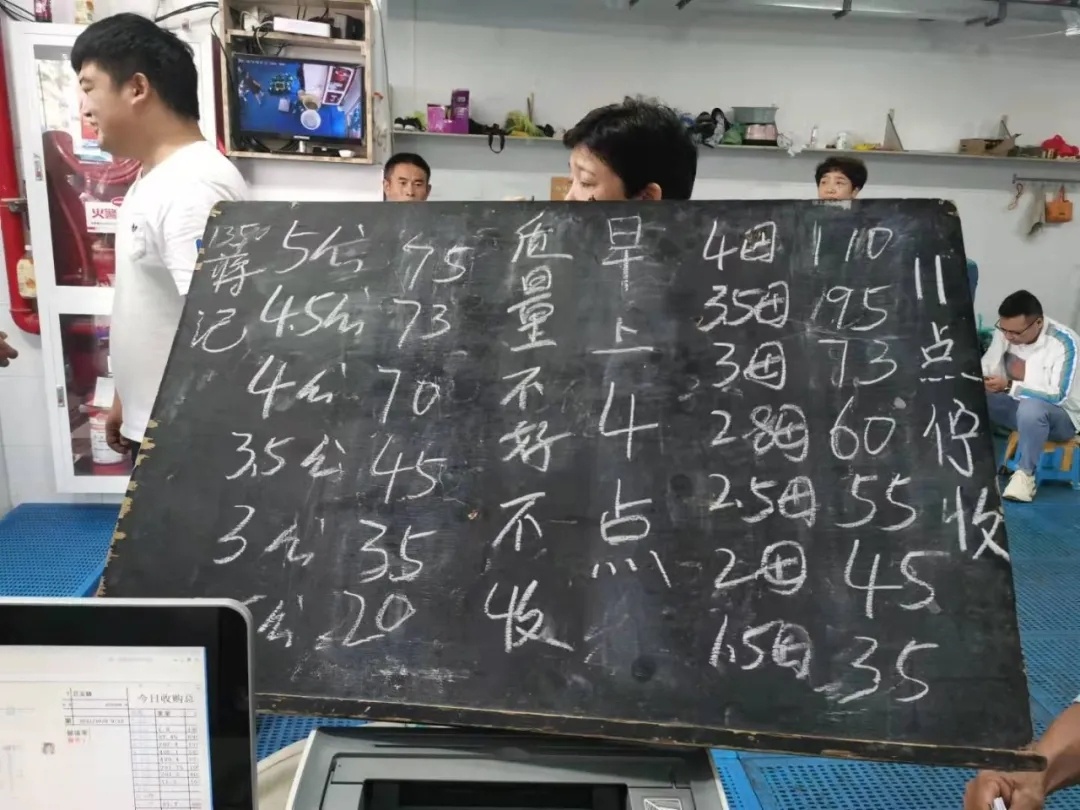 蒋记
5公 75
4.5公 73
4公 70
3.5公 45
3公 35
公 20
质量不好不收
早上4点
4母 110
3.5母 195
3母 73
2.8母 60
2.5母 55
2母 45
1.5母 35
11点停收
火警
今日收购总